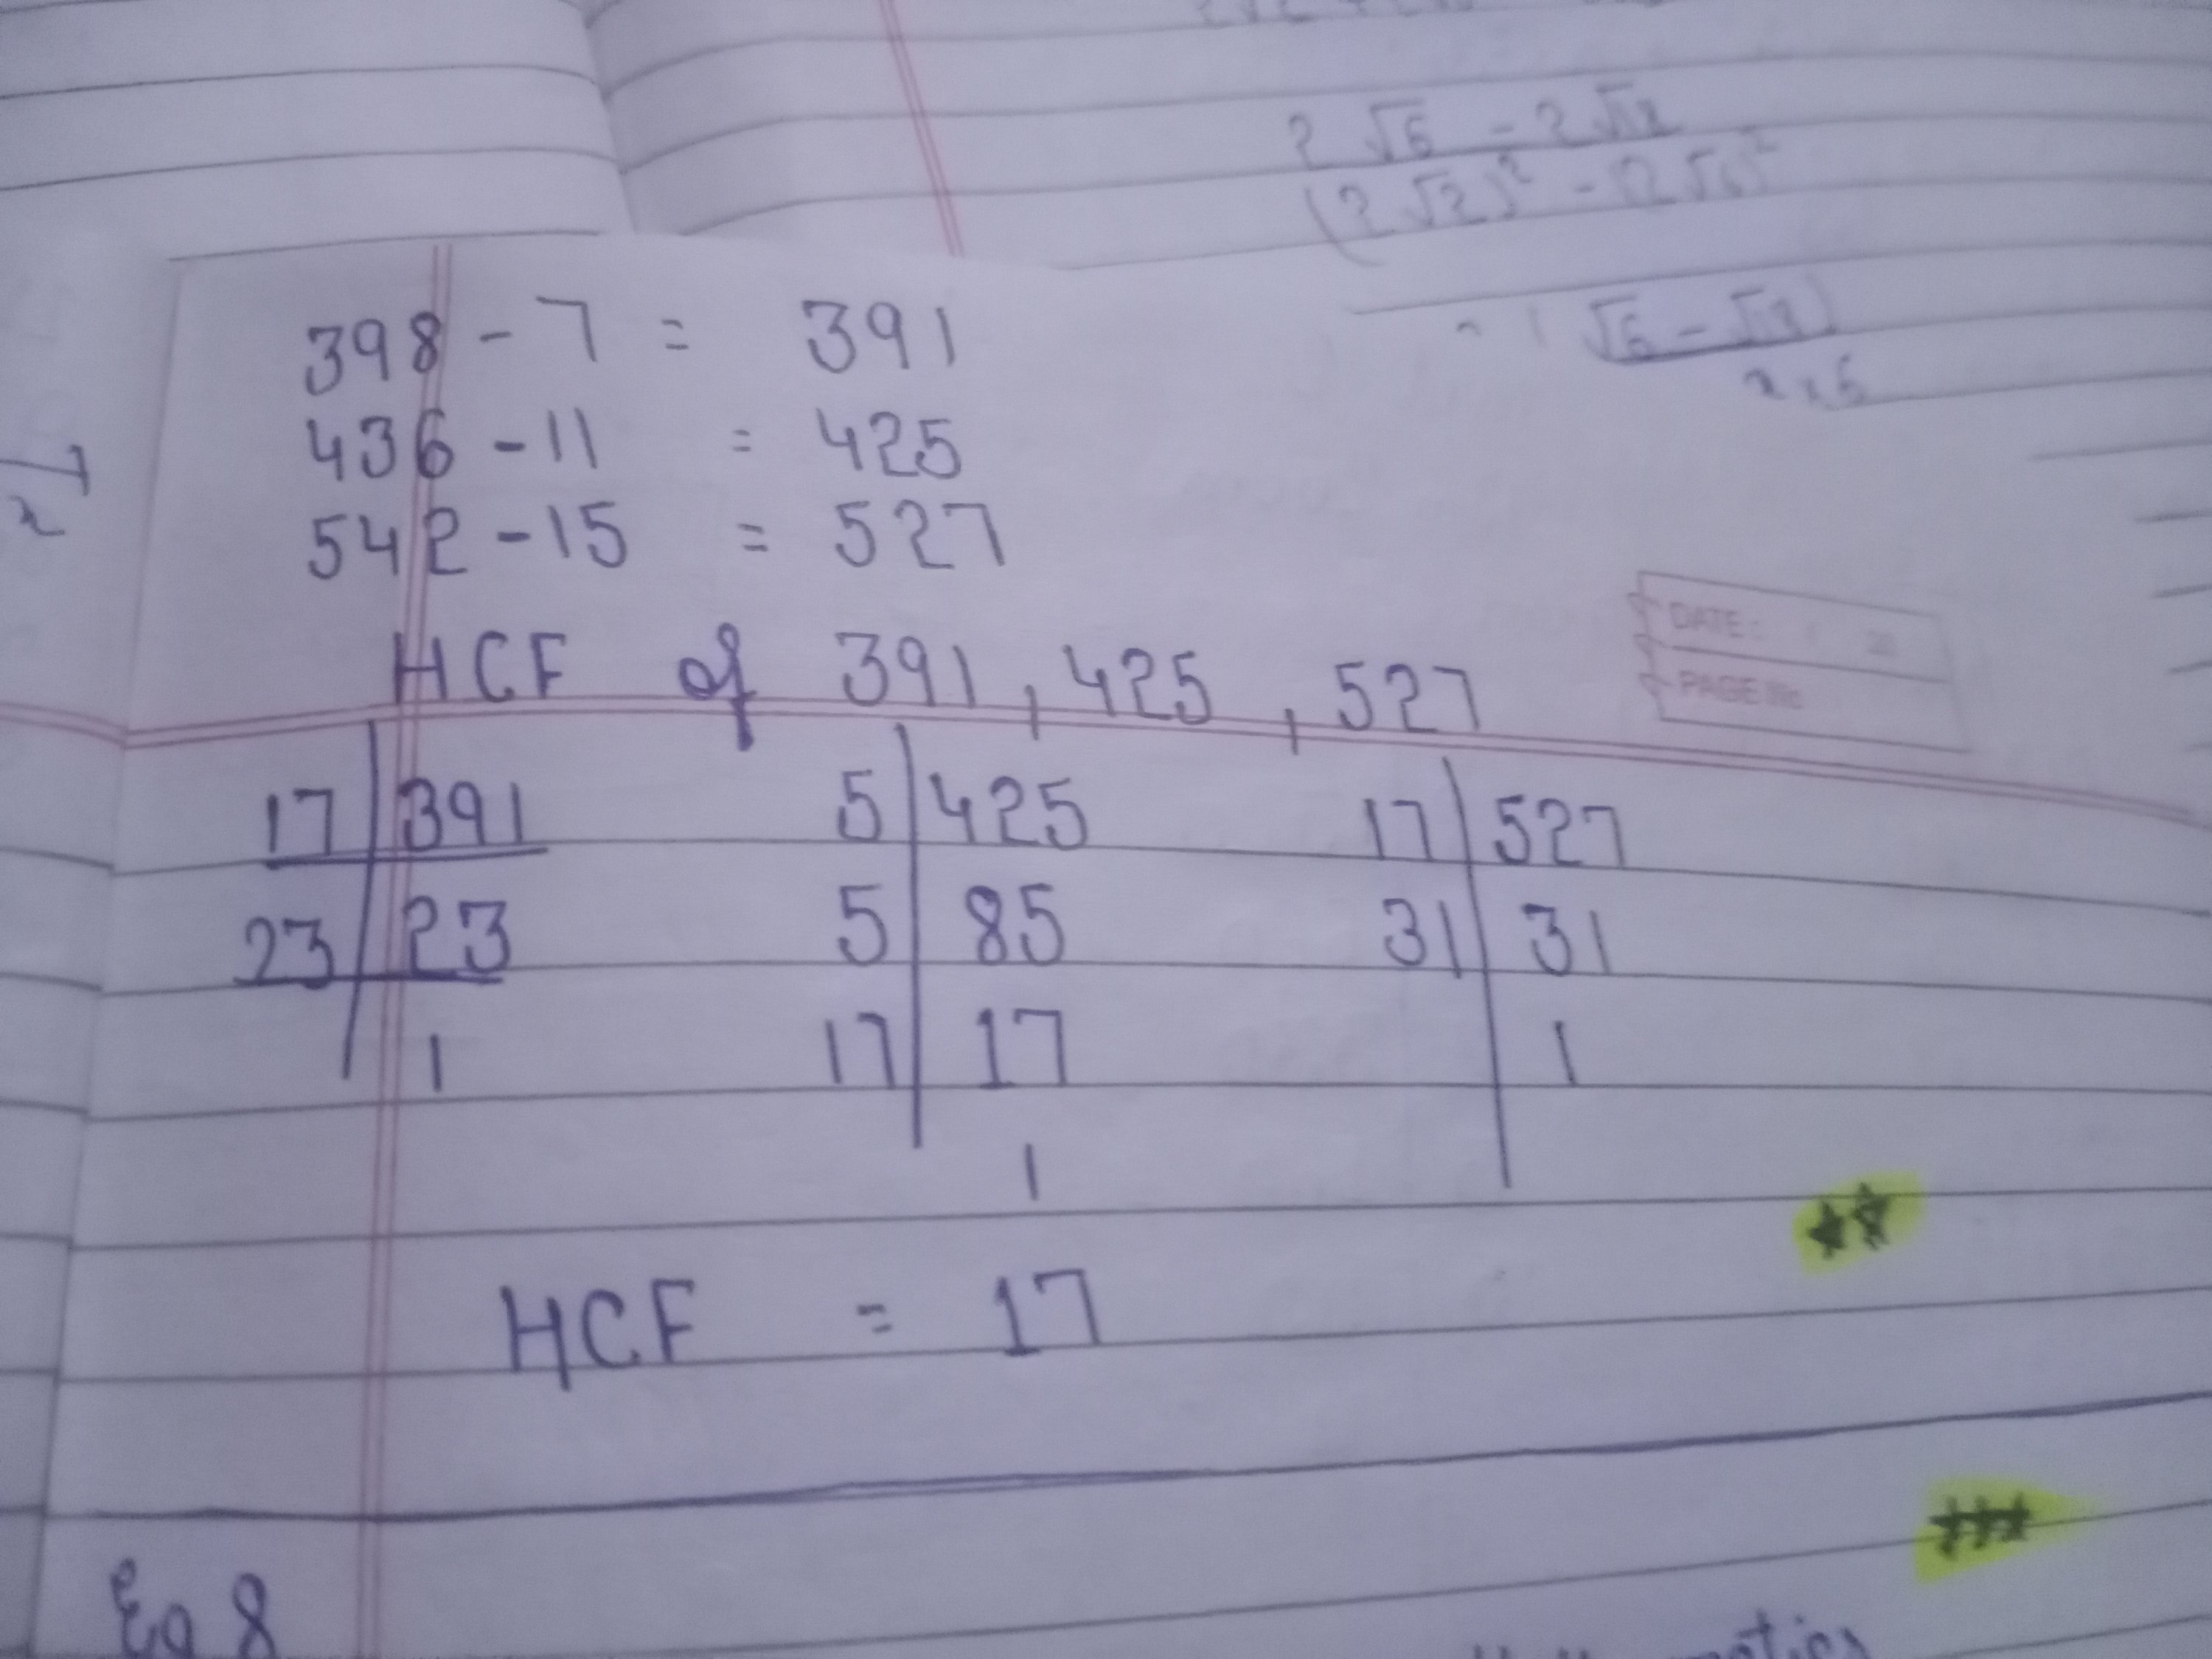 2√6 - 2√
(2√2)² - (2√6)²
√6 -
398 - 7 = 391
436 - 11 = 425
542 - 15 = 527
DATE:
PAGE No
HCF of 391, 425, 527
17 | 391 5 | 425 17 | 527
23 | 23 5 | 85 31 | 31
1 17 | 17 1
1
HCF = 17
Eq 8